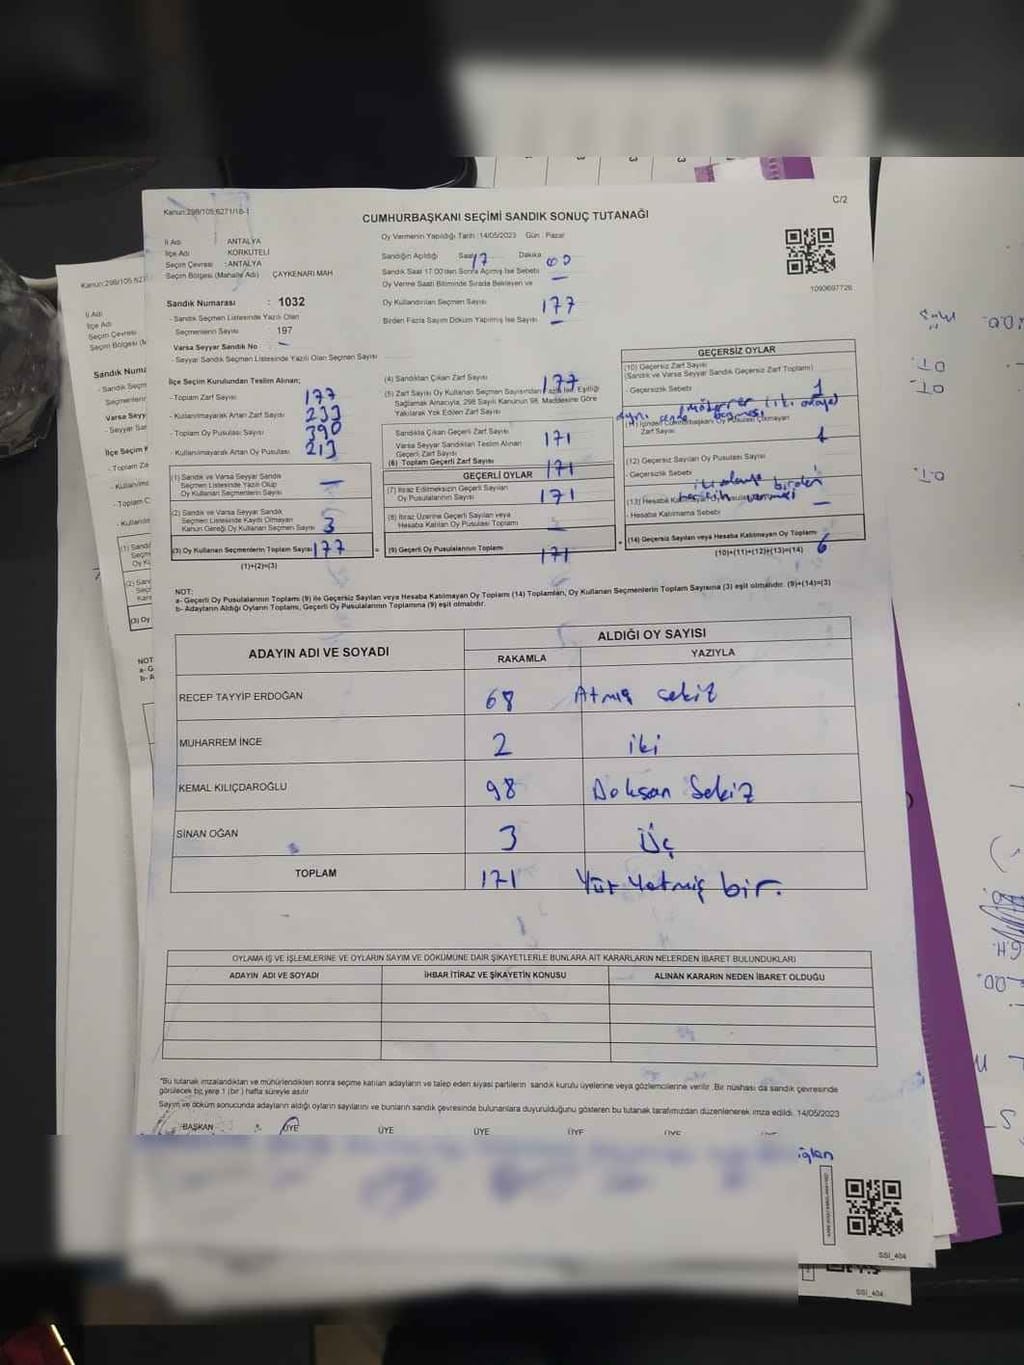 Kanun:298/105;6271/18-1
C/2
CUMHURBAŞKANI SEÇİMİ SANDIK SONUÇ TUTANAĞI
İl Adı : ANTALYA
İlçe Adı : KORKUTELİ
Seçim Çevresi : ANTALYA
Seçim Bölgesi (Mahalle Adı) ÇAYKENARI MAH
Sandık Numarası : 1032
- Sandık Seçmen Listesinde Yazılı Olan
Seçmenlerin Sayısı 197
Varsa Seyyar Sandık No : -
- Seyyar Sandık Seçmen Listesinde Yazılı Olan Seçmen Sayısı
Oy Vermenin Yapıldığı Tarih :14/05/2023 Gün : Pazar
Sandığın Açıldığı Saat 17 Dakika 00
Sandık Saat 17:00'den Sonra Açılmış İse Sebebi -
Oy Verme Saati Bitiminde Sırada Bekleyen ve
Oy Kullandırılan Seçmen Sayısı 177
Birden Fazla Sayım Döküm Yapılmış İse Sayısı -
1090697726
İlçe Seçim Kurulundan Teslim Alınan;
- Toplam Zarf Sayısı 177
- Kullanılmayarak Artan Zarf Sayısı 233
- Toplam Oy Pusulası Sayısı 390
- Kullanılmayarak Artan Oy Pusulası 213
(1) Sandık ve Varsa Seyyar Sandık
Seçmen Listesinde Yazılı Olup
Oy Kullanan Seçmenlerin Sayısı -
(2) Sandık ve Varsa Seyyar Sandık
Seçmen Listesinde Kaydı Olmayan
Kanun Gereği Oy Kullanan Seçmen Sayısı 3
(3) Oy Kullanan Seçmenlerin Toplam Sayısı 177
(1)+(2)=(3)
(4) Sandıktan Çıkan Zarf Sayısı 177
(5) Zarf Sayısı Oy Kullanan Seçmen Sayısından Fazla İse, Eşitliği
Sağlamak Amacıyla, 298 Sayılı Kanunun 98. Maddesine Göre
Yakılarak Yok Edilen Zarf Sayısı
Sandıkta Çıkan Geçerli Zarf Sayısı
Varsa Seyyar Sandıktan Teslim Alınan
Geçerli Zarf Sayısı 171
(6) Toplam Geçerli Zarf Sayısı 171
GEÇERLİ OYLAR
(7) İtiraz Edilmeksizin Geçerli Sayılan
Oy Pusulalarının Sayısı 171
(8) İtiraz Üzerine Geçerli Sayılan veya
Hesaba Katılan Oy Pusulası Toplamı -
(9) Geçerli Oy Pusulalarının Toplamı 171
GEÇERSİZ OYLAR
(10) Geçersiz Zarf Sayısı
(Sandık ve Varsa Seyyar Sandık Geçersiz Zarf Toplamı)
- Geçersizlik Sebebi 1
(11) İçinden Cumhurbaşkanı Oy Pusulası Çıkmayan
Zarf Sayısı 1
(12) Geçersiz Sayılan Oy Pusulası Sayısı
- Geçersizlik Sebebi
- Hesaba Katılmama Sebebi
(14) Geçersiz Sayılan veya Hesaba Katılmayan Oy Toplamı 6
(10)+(11)+(12)+(13)=(14)
NOT:
a- Geçerli Oy Pusulalarının Toplamı (9) ile Geçersiz Sayılan veya Hesaba Katılmayan Oy Toplamı (14) Toplamları, Oy Kullanan Seçmenlerin Toplam Sayısına (3) eşit olmalıdır. (9)+(14)=(3)
b- Adayların Aldığı Oyların Toplamı, Geçerli Oy Pusulalarının Toplamına (9) eşit olmalıdır.
ADAYIN ADI VE SOYADI
ALDIĞI OY SAYISI
RAKAMLA YAZIYLA
RECEP TAYYİP ERDOĞAN 68 Atmış sekiz
MUHARREM İNCE 2 iki
KEMAL KILIÇDAROĞLU 98 Doksan Sekiz
SİNAN OĞAN 3 Üç
TOPLAM 171 Yüz Yetmiş bir.
OYLAMA İŞ VE İŞLEMLERİNE VE OYLARIN SAYIM VE DÖKÜMÜNE DAİR ŞİKAYETLERLE BUNLARA AİT KARARLARIN NELERDEN İBARET BULUNDUKLARI
ADAYIN ADI VE SOYADI İHBAR İTİRAZ VE ŞİKAYETİN KONUSU ALINAN KARARIN NEDEN İBARET OLDUĞU
*Bu tutanak imzalandıktan ve mühürlendikten sonra seçime katılan adayların ve talep eden siyasi partilerin sandık kurulu üyelerine veya gözlemcilerine verilir. Bir nüshası da sandık çevresinde
görülecek bir yere 1 (bir) hafta süreyle asılır
Sayım ve döküm sonucunda adayların aldığı oyların sayılarını ve bunların sandık çevresinde bulunanlara duyurulduğunu gösteren bu tutanak tarafımızdan düzenlenerek imza edildi. 14/05/2023
BAŞKAN ÜYE ÜYE ÜYE ÜYE ÜYE
SSI_404
SSI_404